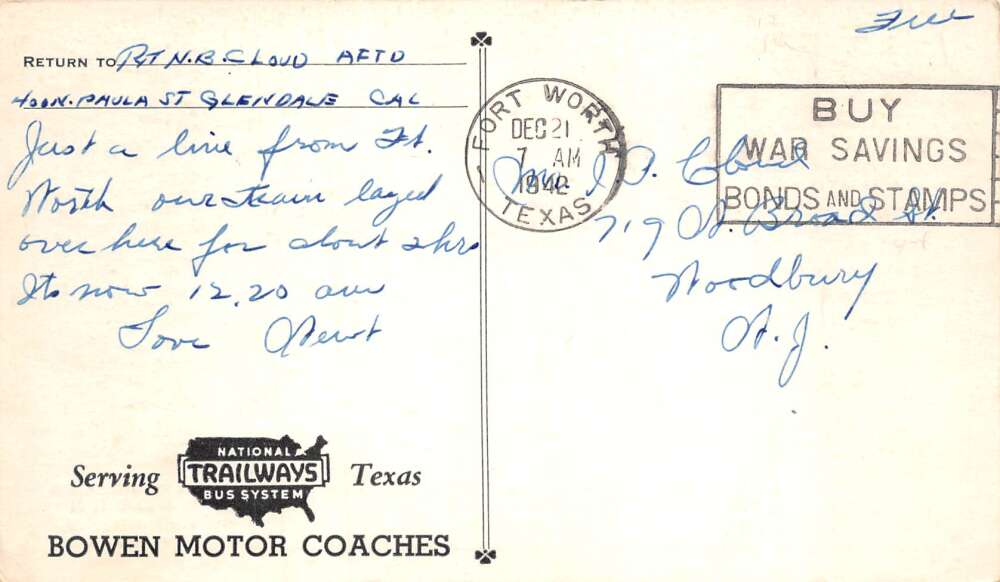 Free
RETURN TO PVT N.B. CLOUD AFTD
400 N. PAULA ST GLENDALE CAL
Just a line from Ft.
Worth our train layed
over here for about 2 hrs
Its now 12.20 am
Love Newt
FORT WORTH
DEC 21
7 AM
1942
TEXAS
BUY
WAR SAVINGS
BONDS AND STAMPS
Cloud
719 N. Broad St.
Woodbury
N.J.
Serving
NATIONAL
TRAILWAYS
BUS SYSTEM
Texas
BOWEN MOTOR COACHES